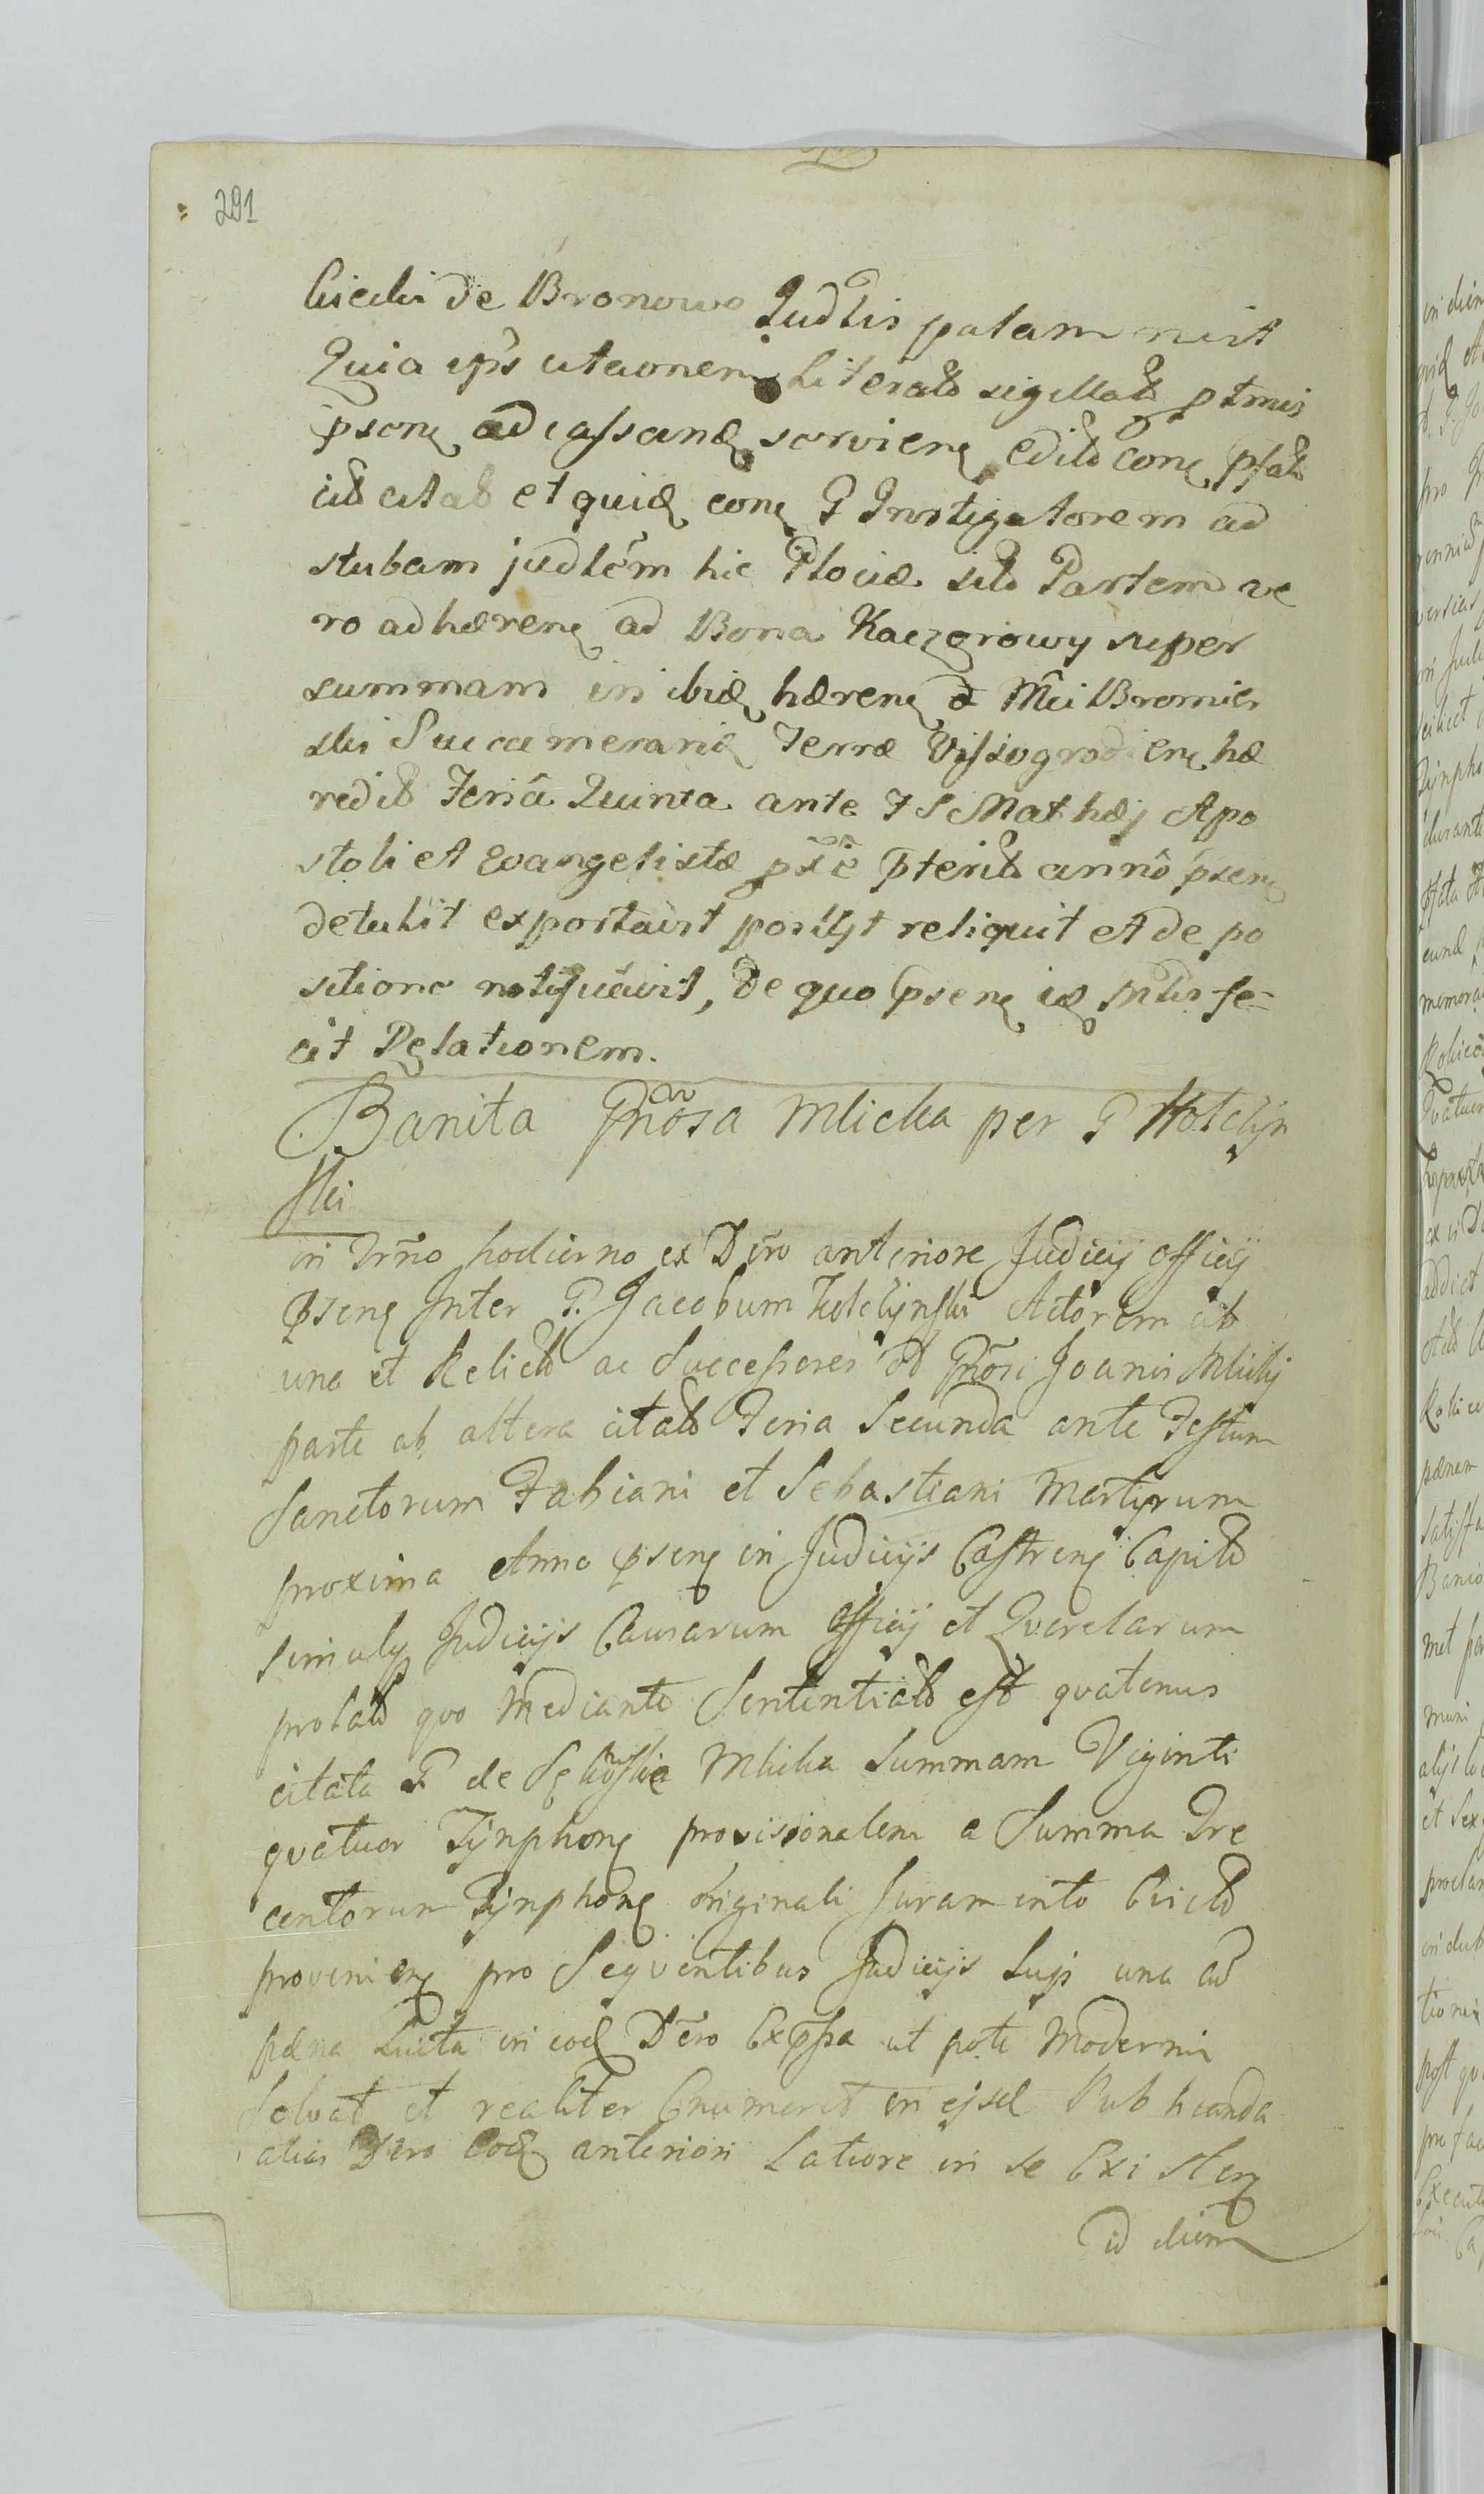 291
de Bronowo Judlis palam
Quia citaonem literalem sigillatem
psone ad cassand servien edit con pfat
citat et quid con G Instigatorem ad
stubam judlem hic Plociæ sit Partem ve
ro adhæren ad Bona Kaczorowy super
summam in ibid hæren Mci Bromier
ski Succamerarid Terræ Vissogrodien hæ
redit Feria Quinta ante F S Mathæj Apo
stoli et Evangelistæ pxe pterit anno psen
detulit exportavit posuit reliquit et de po
sitione notificavit, de quo psen id fe-
cit Relationem.
Banita Gnosa Mlicka per G Kotclyn
ski
in Trno hodierno ex Dcro anteriore Judicij officij
psen Inter G. Jacobum Kotclynski Actorem ab
una et Relict ac Successores Gnosi Joanis Mlicki
parte ab altera citat Feria Secunda ante Festum
Sanctorum Fabiani et Sebastiani Martyrum
proxima Anno psen in Judicijs Castren Capit
simulq Judicijs Causarum officij et Qverelarum
prolat qvo Mediante Sententiat est qvatenus
citata G de Mlicka Summam Viginti
qvatuor Tynphon provisionalem a Summa Tre
centorum Tynphon originali Juramento Evict
provenien pro Seqventibus Judicijs una
pæna Luita in eod Dcro Expssa ut pote Moderni
Solvat et realiter Enumeret in ejsd Pub
alias Dcro eod anteriori Latiore in se Existen
ad diem